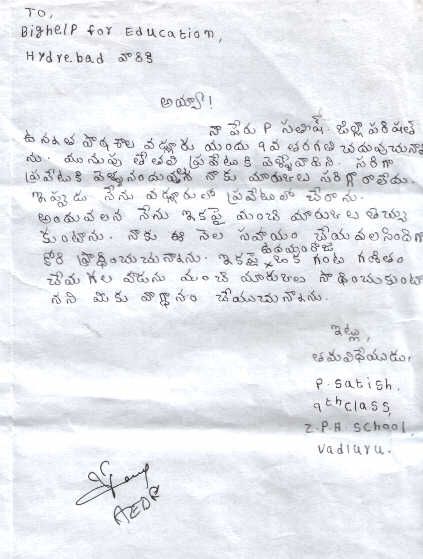 TO,
BigHelP for Education,
Hydrebad వారికి
అయ్యా!
నా పేరు P సతీష్. జిల్లా పరిషత్
ఉన్నత పాఠశాల వడ్లూరు యందు 9వ తరగతి చదువుచున్నా
ను. మునుపు తేతలి ప్రైవేటుకి వెళ్ళేవాడిని. సరిగా
ప్రైవేటుకి వెళ్ళనందువల్లన నాకు మార్కులు సరిగ్గా రాలేదు.
ఇప్పుడు నేను వడ్లూరులో ప్రైవేటులో చేరాను.
అందువలన నేను ఇకపై మంచి మార్కులు తెచ్చు
కుంటాను. నాకు ఈ నెల సహాయం చేయవలసిందిగా
కోరి ప్రార్థించుచున్నాను. ఇకపై ఒక గంట గణితం
చేయగల వాడును మంచి మార్కులు సాధించుకుంటా
నని మీకు వాగ్దానం చేయుచున్నాను.
ఇట్లు,
తమవిధేయుడు,
P. Satish.
9th class,
Z.P.H School,
Vadluru.